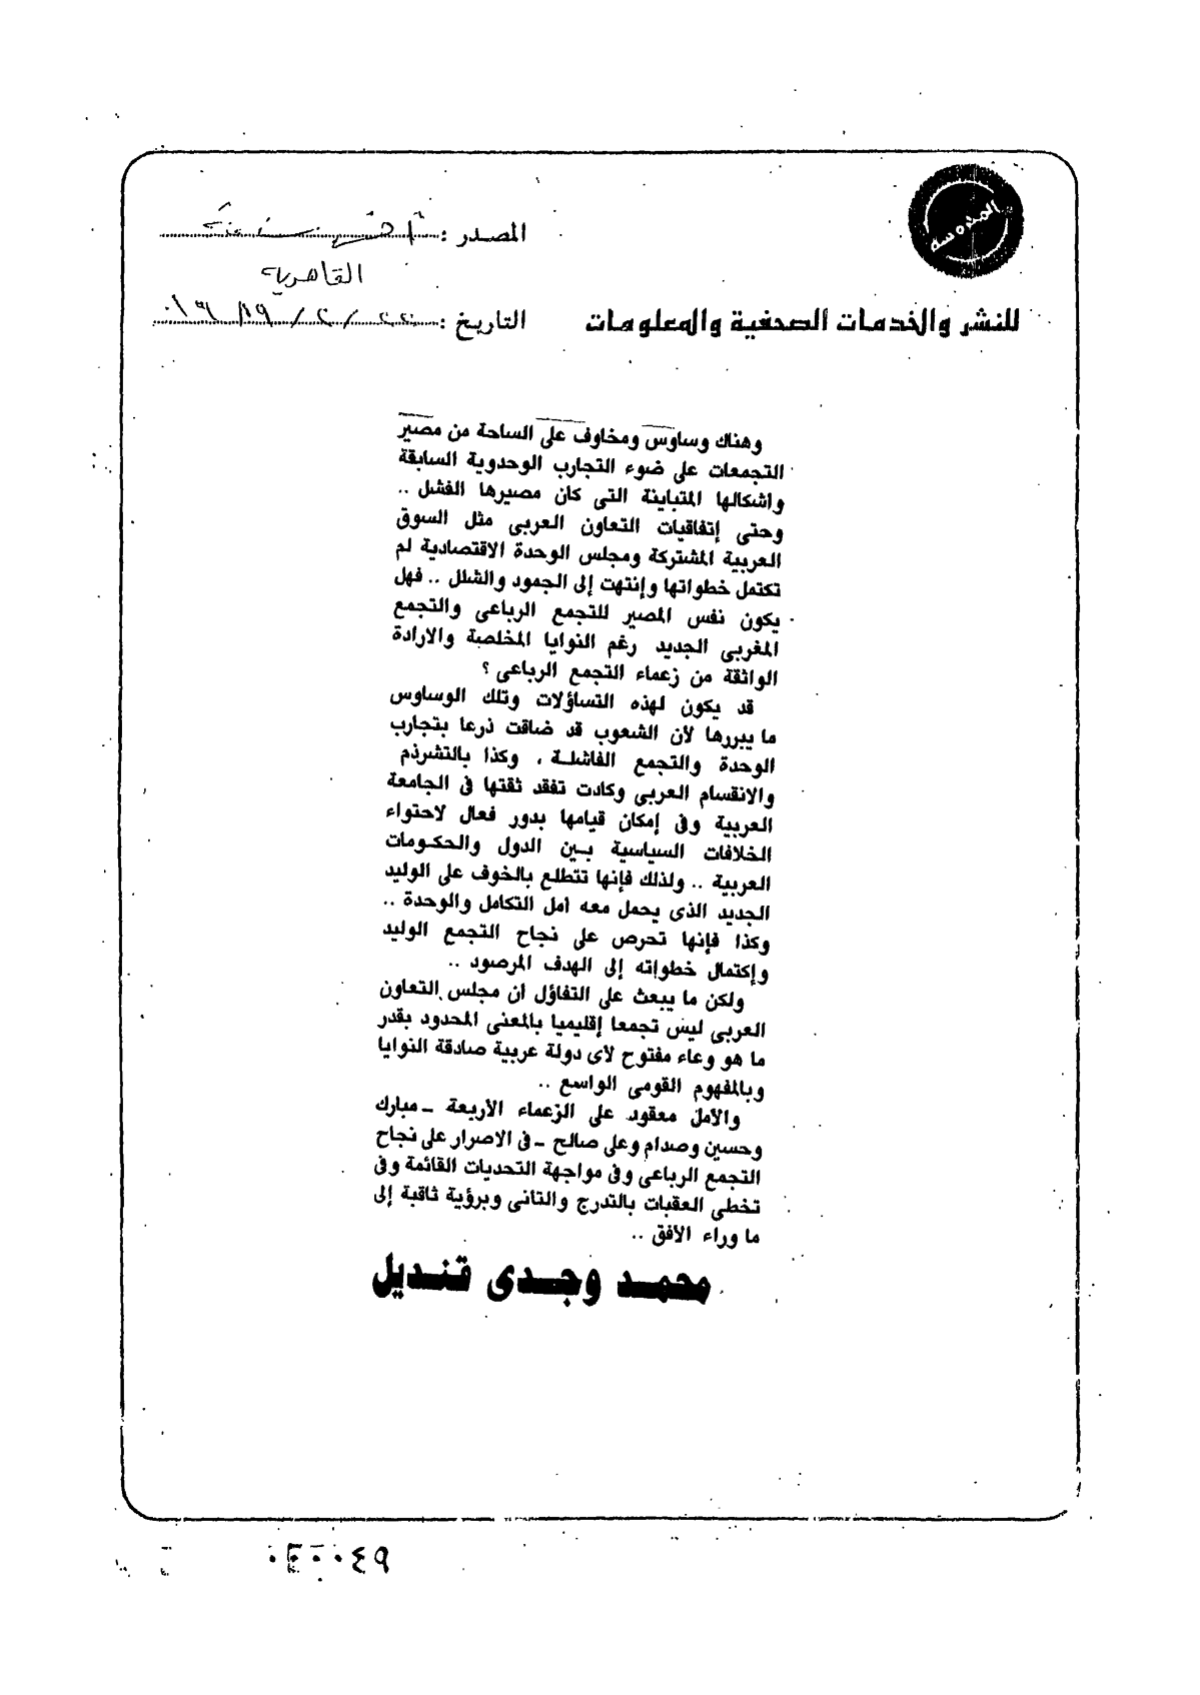 المصدر : آخر ساعة
القاهرية
التاريخ :
للنشر والخدمات الصحفية والمعلومات
وهناك وساوس ومخاوف على الساحة من مصير
التجمعات على ضوء التجارب الوحدوية السابقة
واشكالها المتباينة التى كان مصيرها الفشل ..
وحتى إتفاقيات التعاون العربى مثل السوق
العربية المشتركة ومجلس الوحدة الاقتصادية لم
تكتمل خطواتها وإنتهت إلى الجمود والشلل .. فهل
يكون نفس المصير للتجمع الرباعى والتجمع
المغربى الجديد رغم النوايا المخلصة والارادة
الواثقة من زعماء التجمع الرباعى ؟
قد يكون لهذه التساؤلات وتلك الوساوس
ما يبررها لأن الشعوب قد ضاقت ذرعا بتجارب
الوحدة والتجمع الفاشلة ، وكذا بالتشرذم
والانقسام العربى وكادت تفقد ثقتها فى الجامعة
العربية وفى إمكان قيامها بدور فعال لاحتواء
الخلافات السياسية بين الدول والحكومات
العربية .. ولذلك فإنها تتطلع بالخوف على الوليد
الجديد الذى يحمل معه أمل التكامل والوحدة ..
وكذا فإنها تحرص على نجاح التجمع الوليد
وإكتمال خطواته إلى الهدف المرصود ..
ولكن ما يبعث على التفاؤل ان مجلس التعاون
العربى ليس تجمعا إقليميا بالمعنى المحدود بقدر
ما هو وعاء مفتوح لأى دولة عربية صادقة النوايا
وبالمفهوم القومى الواسع ..
والأمل معقود على الزعماء الأربعة ـ مبارك
وحسين وصدام وعلى صالح ـ فى الاصرار على نجاح
التجمع الرباعى وفى مواجهة التحديات القائمة وفى
تخطى العقبات بالتدرج والتانى وبرؤية ثاقبة إلى
ما وراء الأفق ..
محمد وجدى قنديل